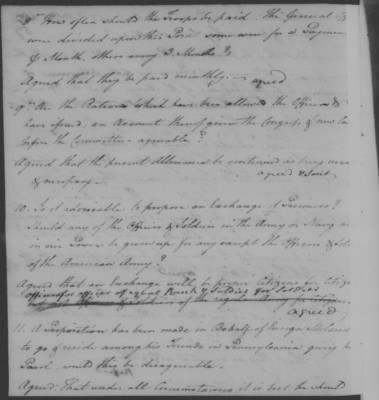 8th How often should the Troops be paid. The General Offrs
were divided upon this Point some were for a Payment
Month others every 3 Months?
Agreed that they be paid monthly. — agreed
9th Are the Rations which have been allowed the Officers &
have issued, an Account thereof given the Congress & now lay
before the Committee agreeable?
Agreed that the present Allowance be continued as being usual
& necessary.— agreed
10. Is it adviseable to propose an Exchange of Prisoners?
Should any of the Officers & Soldiers in the Army or Navy now
in our Power be given up for any except the Officers & Sol
of the American Army?
Agreed that an Exchange will be proper Citizens for Citizens
Officers for officers of equal Rank & Soldier for Soldier
agreed
11. A Proposition has been made on Behalf of
to go & reside among his Friends in Pennsylvania giving his
Parol, would this be disagreeable.
Agreed: That under all Circumstances it is best he should